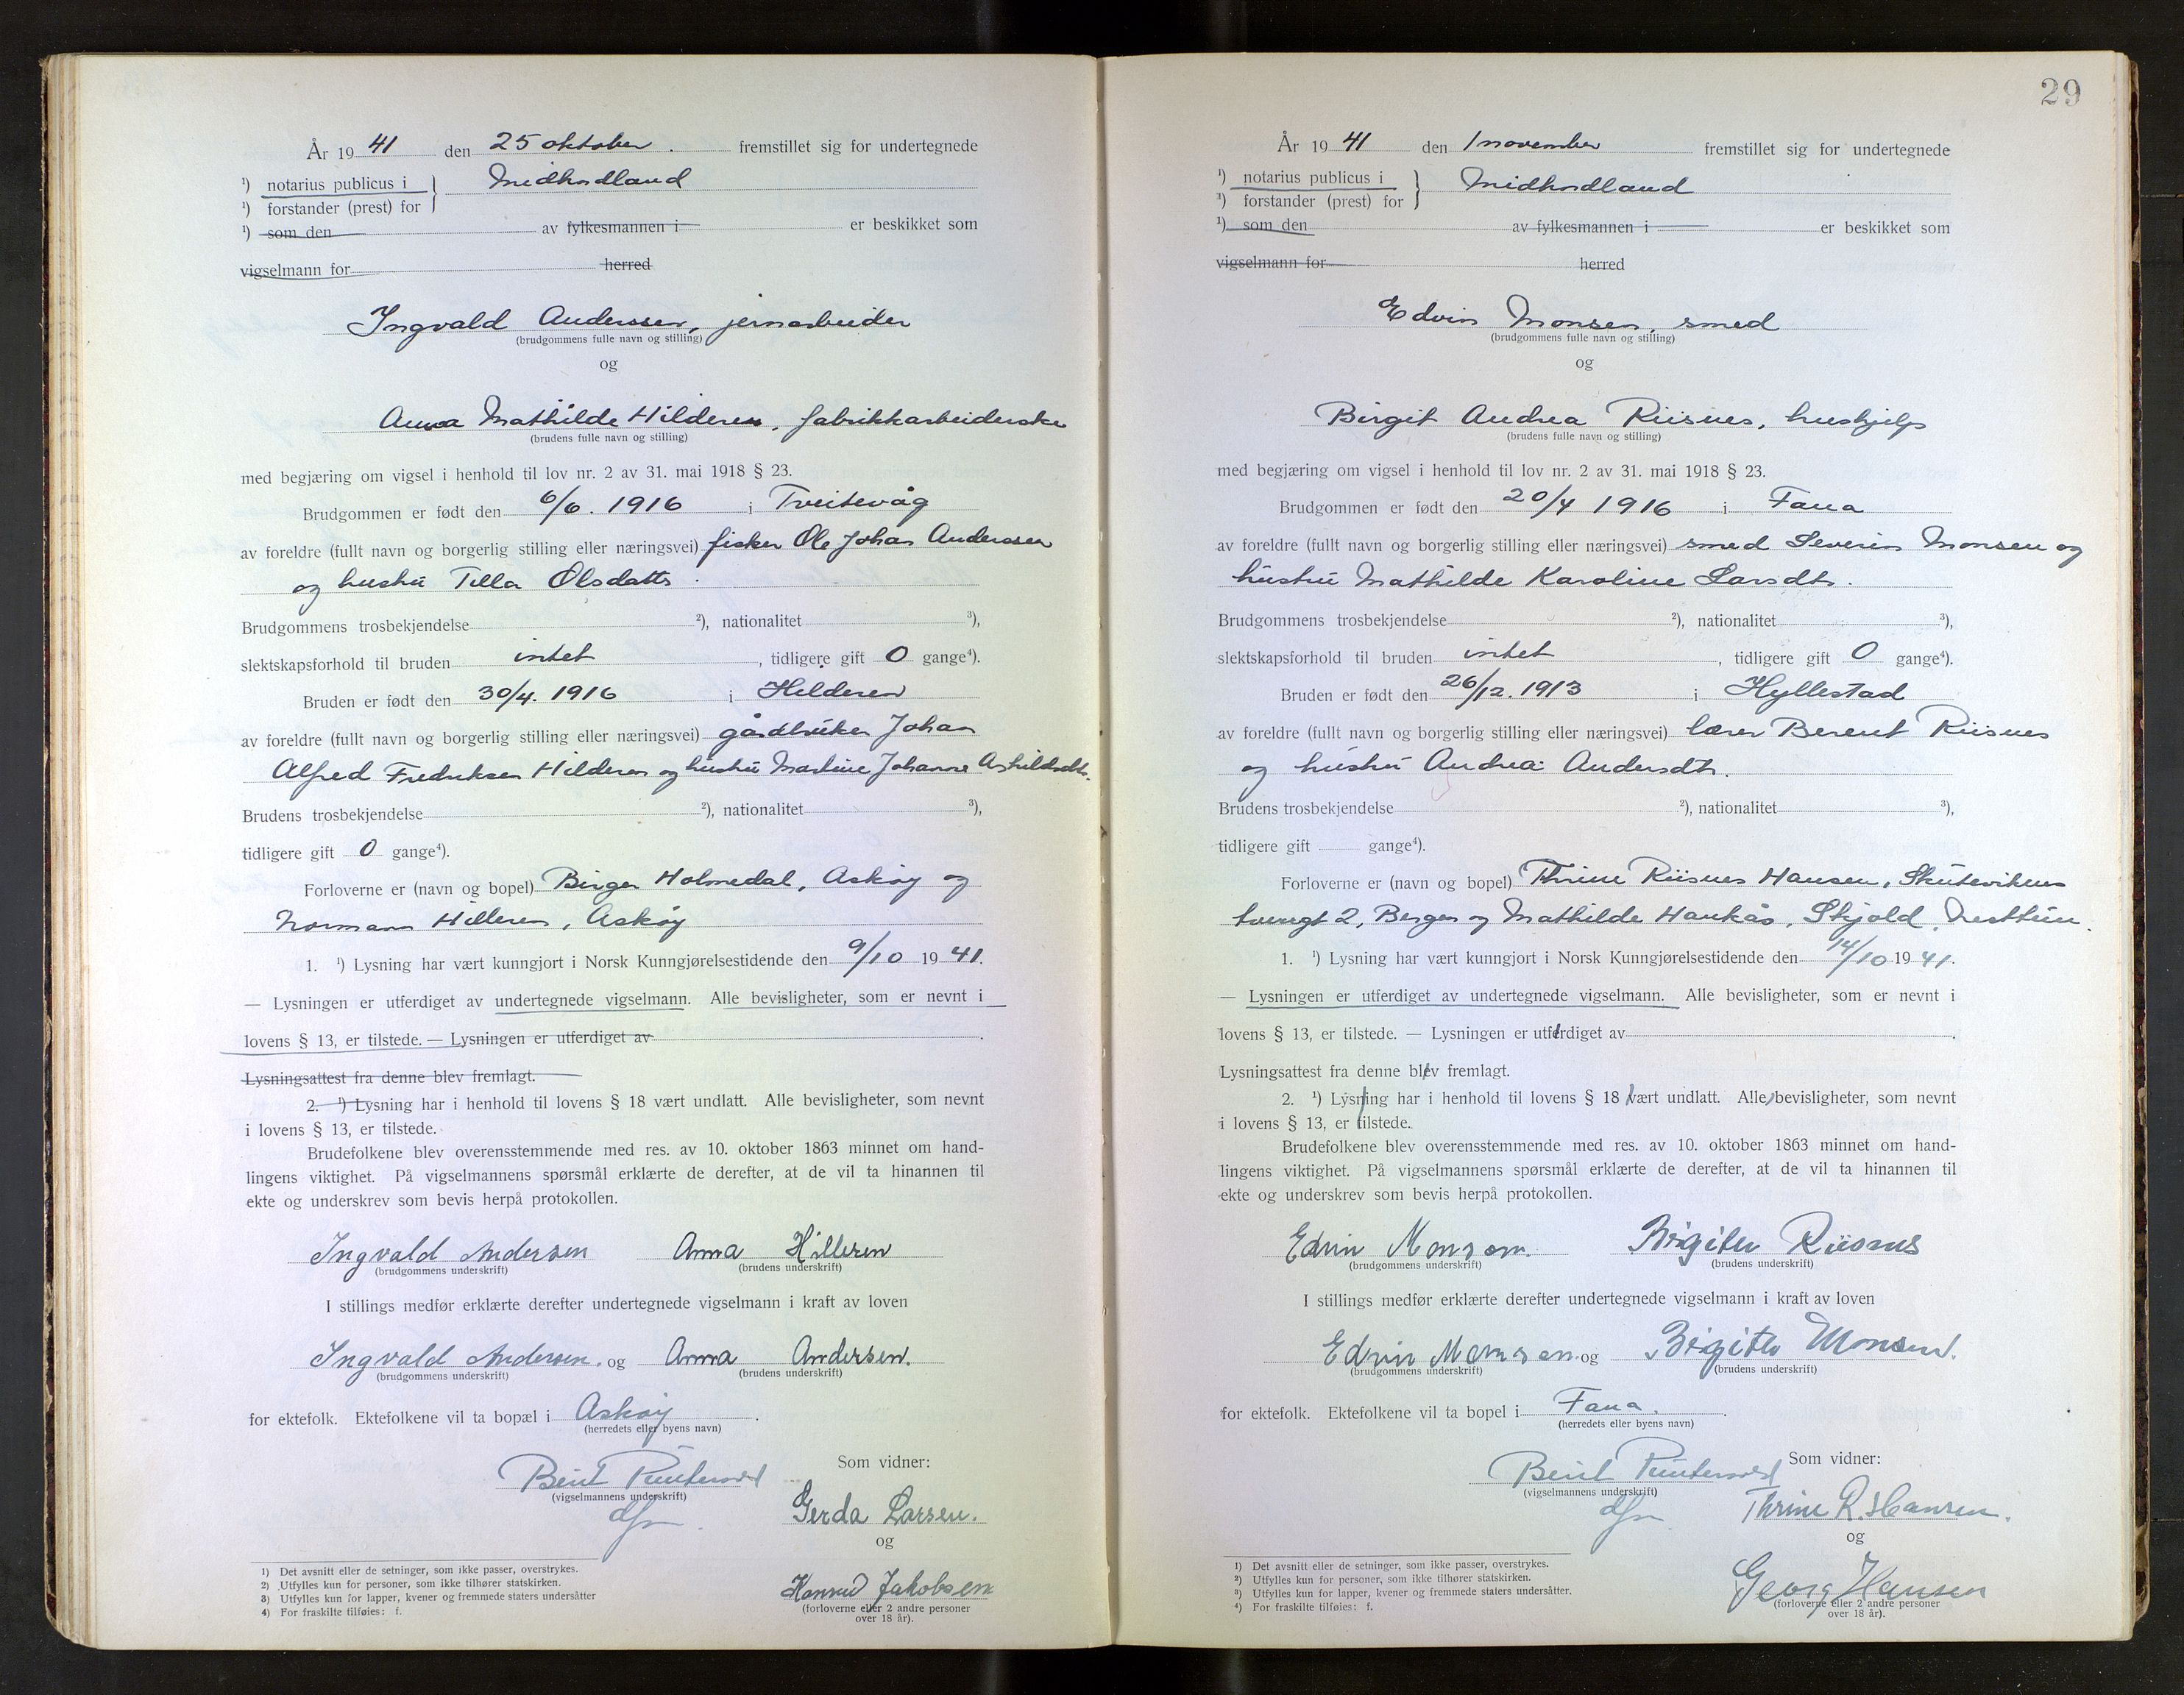 År 1941 den 25 oktober. fremstillet sig for undertegnede
¹) notarius publicus i } Midhordland
¹) forstander (prest) for
¹) som den av fylkesmannen i er beskikket som
vigselmann for herred
Ingvald Anderssen, jernarbeider
(brudgommens fulle navn og stilling)
og
Anna Mathilde Hilderen, fabrikkarbeiderske
(brudens fulle navn og stilling)
med begjæring om vigsel i henhold til lov nr. 2 av 31. mai 1918 § 23.
Brudgommen er født den 6/6. 1916 i Tveitevåg
av foreldre (fullt navn og borgerlig stilling eller næringsvei) fisker Ole Johan Anderssen
og hustru Tilla Olsdatter.
Brudgommens trosbekjendelse ²), nationalitet ³),
slektskapsforhold til bruden intet, tidligere gift 0 gange⁴).
Bruden er født den 30/4. 1916 i Hilderen
av foreldre (fullt navn og borgerlig stilling eller næringsvei) gårdbruker Johan
Alfred Fredriksen Hilderen og hustru Martine Johanne Askildsdtr.
Brudens trosbekjendelse ²), nationalitet ³),
tidligere gift 0 gange⁴).
Forloverne er (navn og bopel) Birger Holmedal, Askøy og
Normann Hilleren, Askøy
1. ¹) Lysning har vært kunngjort i Norsk Kunngjørelsestidende den 9/10 1941.
— Lysningen er utferdiget av undertegnede vigselmann. Alle bevisligheter, som er nevnt i
lovens § 13, er tilstede. — Lysningen er utferdiget av .
Lysningsattest fra denne blev fremlagt.
2. ¹) Lysning har i henhold til lovens § 18 vært undlatt. Alle bevisligheter, som nevnt
i lovens § 13, er tilstede.
Brudefolkene blev overensstemmende med res. av 10. oktober 1863 minnet om hand-
lingens viktighet. På vigselmannens spørsmål erklærte de derefter, at de vil ta hinannen til
ekte og underskrev som bevis herpå protokollen.
Ingvald Andersen Anna Hilleren
(brudgommens underskrift) (brudens underskrift)
I stillings medfør erklærte derefter undertegnede vigselmann i kraft av loven
Ingvald Andersen. og Anna Andersen.
(brudgommens underskrift) (brudens underskrift)
for ektefolk. Ektefolkene vil ta bopæl i Askøy.
(herredets eller byens navn)
Som vidner:
Berit
(vigselmannens underskrift)
Gerda Larsen.
og
Konrad Jakobsen
(forloverne eller 2 andre personer
over 18 år).
1) Det avsnitt eller de setninger, som ikke passer, overstrykes.
2) Utfylles kun for personer, som ikke tilhører statskirken.
3) Utfylles kun for lapper, kvener og fremmede staters undersåtter
4) For fraskilte tilføies: f.
29
År 1941 den 1 november fremstillet sig for undertegnede
¹) notarius publicus i } Midhordland
¹) forstander (prest) for
¹) som den av fylkesmannen i er beskikket som
vigselmann for herred
Edvin Monsen, smed
(brudgommens fulle navn og stilling)
og
Birgit Andrea Riisnes, hushjelp
(brudens fulle navn og stilling)
med begjæring om vigsel i henhold til lov nr. 2 av 31. mai 1918 § 23.
Brudgommen er født den 20/4 1916 i Fana
av foreldre (fullt navn og borgerlig stilling eller næringsvei) smed Severin Monsen og
hustru Mathilde Karoline Larsdtr.
Brudgommens trosbekjendelse ²), nationalitet ³),
slektskapsforhold til bruden intet, tidligere gift 0 gange⁴).
Bruden er født den 26/12. 1913 i Hyllestad
av foreldre (fullt navn og borgerlig stilling eller næringsvei) lærer Berent Riisnes
og hustru Andrea Andersdtr.
Brudens trosbekjendelse ²), nationalitet ³),
tidligere gift gange⁴).
Forloverne er (navn og bopel) Thrine Riisnes Hansen, Skutevikens
tverrgt 2, Bergen og Mathilde Haukås, Skjold, Nesttun.
1. ¹) Lysning har vært kunngjort i Norsk Kunngjørelsestidende den 14/10 1941.
— Lysningen er utferdiget av undertegnede vigselmann. Alle bevisligheter, som er nevnt i
lovens § 13, er tilstede. — Lysningen er utferdiget av .
Lysningsattest fra denne blev fremlagt.
2. ¹) Lysning har i henhold til lovens § 18 vært undlatt. Alle bevisligheter, som nevnt
i lovens § 13, er tilstede.
Brudefolkene blev overensstemmende med res. av 10. oktober 1863 minnet om hand-
lingens viktighet. På vigselmannens spørsmål erklærte de derefter, at de vil ta hinannen til
ekte og underskrev som bevis herpå protokollen.
Edvin Monsen. Birgitte Riisnes
(brudgommens underskrift) (brudens underskrift)
I stillings medfør erklærte derefter undertegnede vigselmann i kraft av loven
Edvin Monsen. og Birgitte Monsen.
(brudgommens underskrift) (brudens underskrift)
for ektefolk. Ektefolkene vil ta bopel i Fana.
(herredets eller byens navn)
Som vidner:
Berit
(vigselmannens underskrift)
Thrine R. Hansen.
og
Georg Hansen
(forloverne eller 2 andre personer
over 18 år).
1) Det avsnitt eller de setninger, som ikke passer, overstrykes.
2) Utfylles kun for personer, som ikke tilhører statskirken.
3) Utfylles kun for lapper, kvener og fremmede staters undersåtter.
4) For fraskilte tilføies: f.